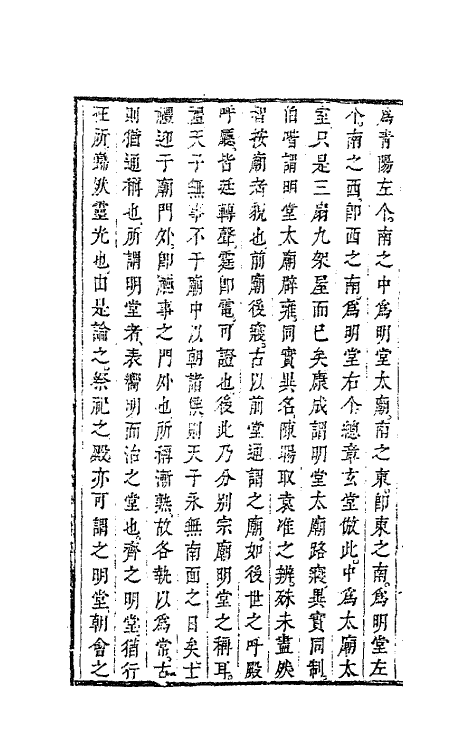 為青陽左个南之中為明堂太廟南之東即東之南為明堂左
个南之西即西之南為明堂右个總章玄堂倣此中為太廟太
室只是三扇九架屋而已矣康成謂明堂太廟路寢異實同制
伯喈謂明堂太廟辟雍同實異名陳暘取袁准之辨殊未盡然
智按廟者貌也前廟後寢古以前堂通謂之廟如後世之呼殿
呼廳皆廷轉聲霆即電可證也後此乃分別宗廟明堂之稱耳
禮天子無事不于廟中以朝諸侯則天子永無南面之日矣士
禮迎于廟門外即廳事之門外也所稱漸熟故各執以為常古
則猶通稱也所謂明堂者表嚮明而治之堂也齊之明堂猶行
在所巋然靈光也由是論之祭祀之殿亦可謂之明堂朝會之